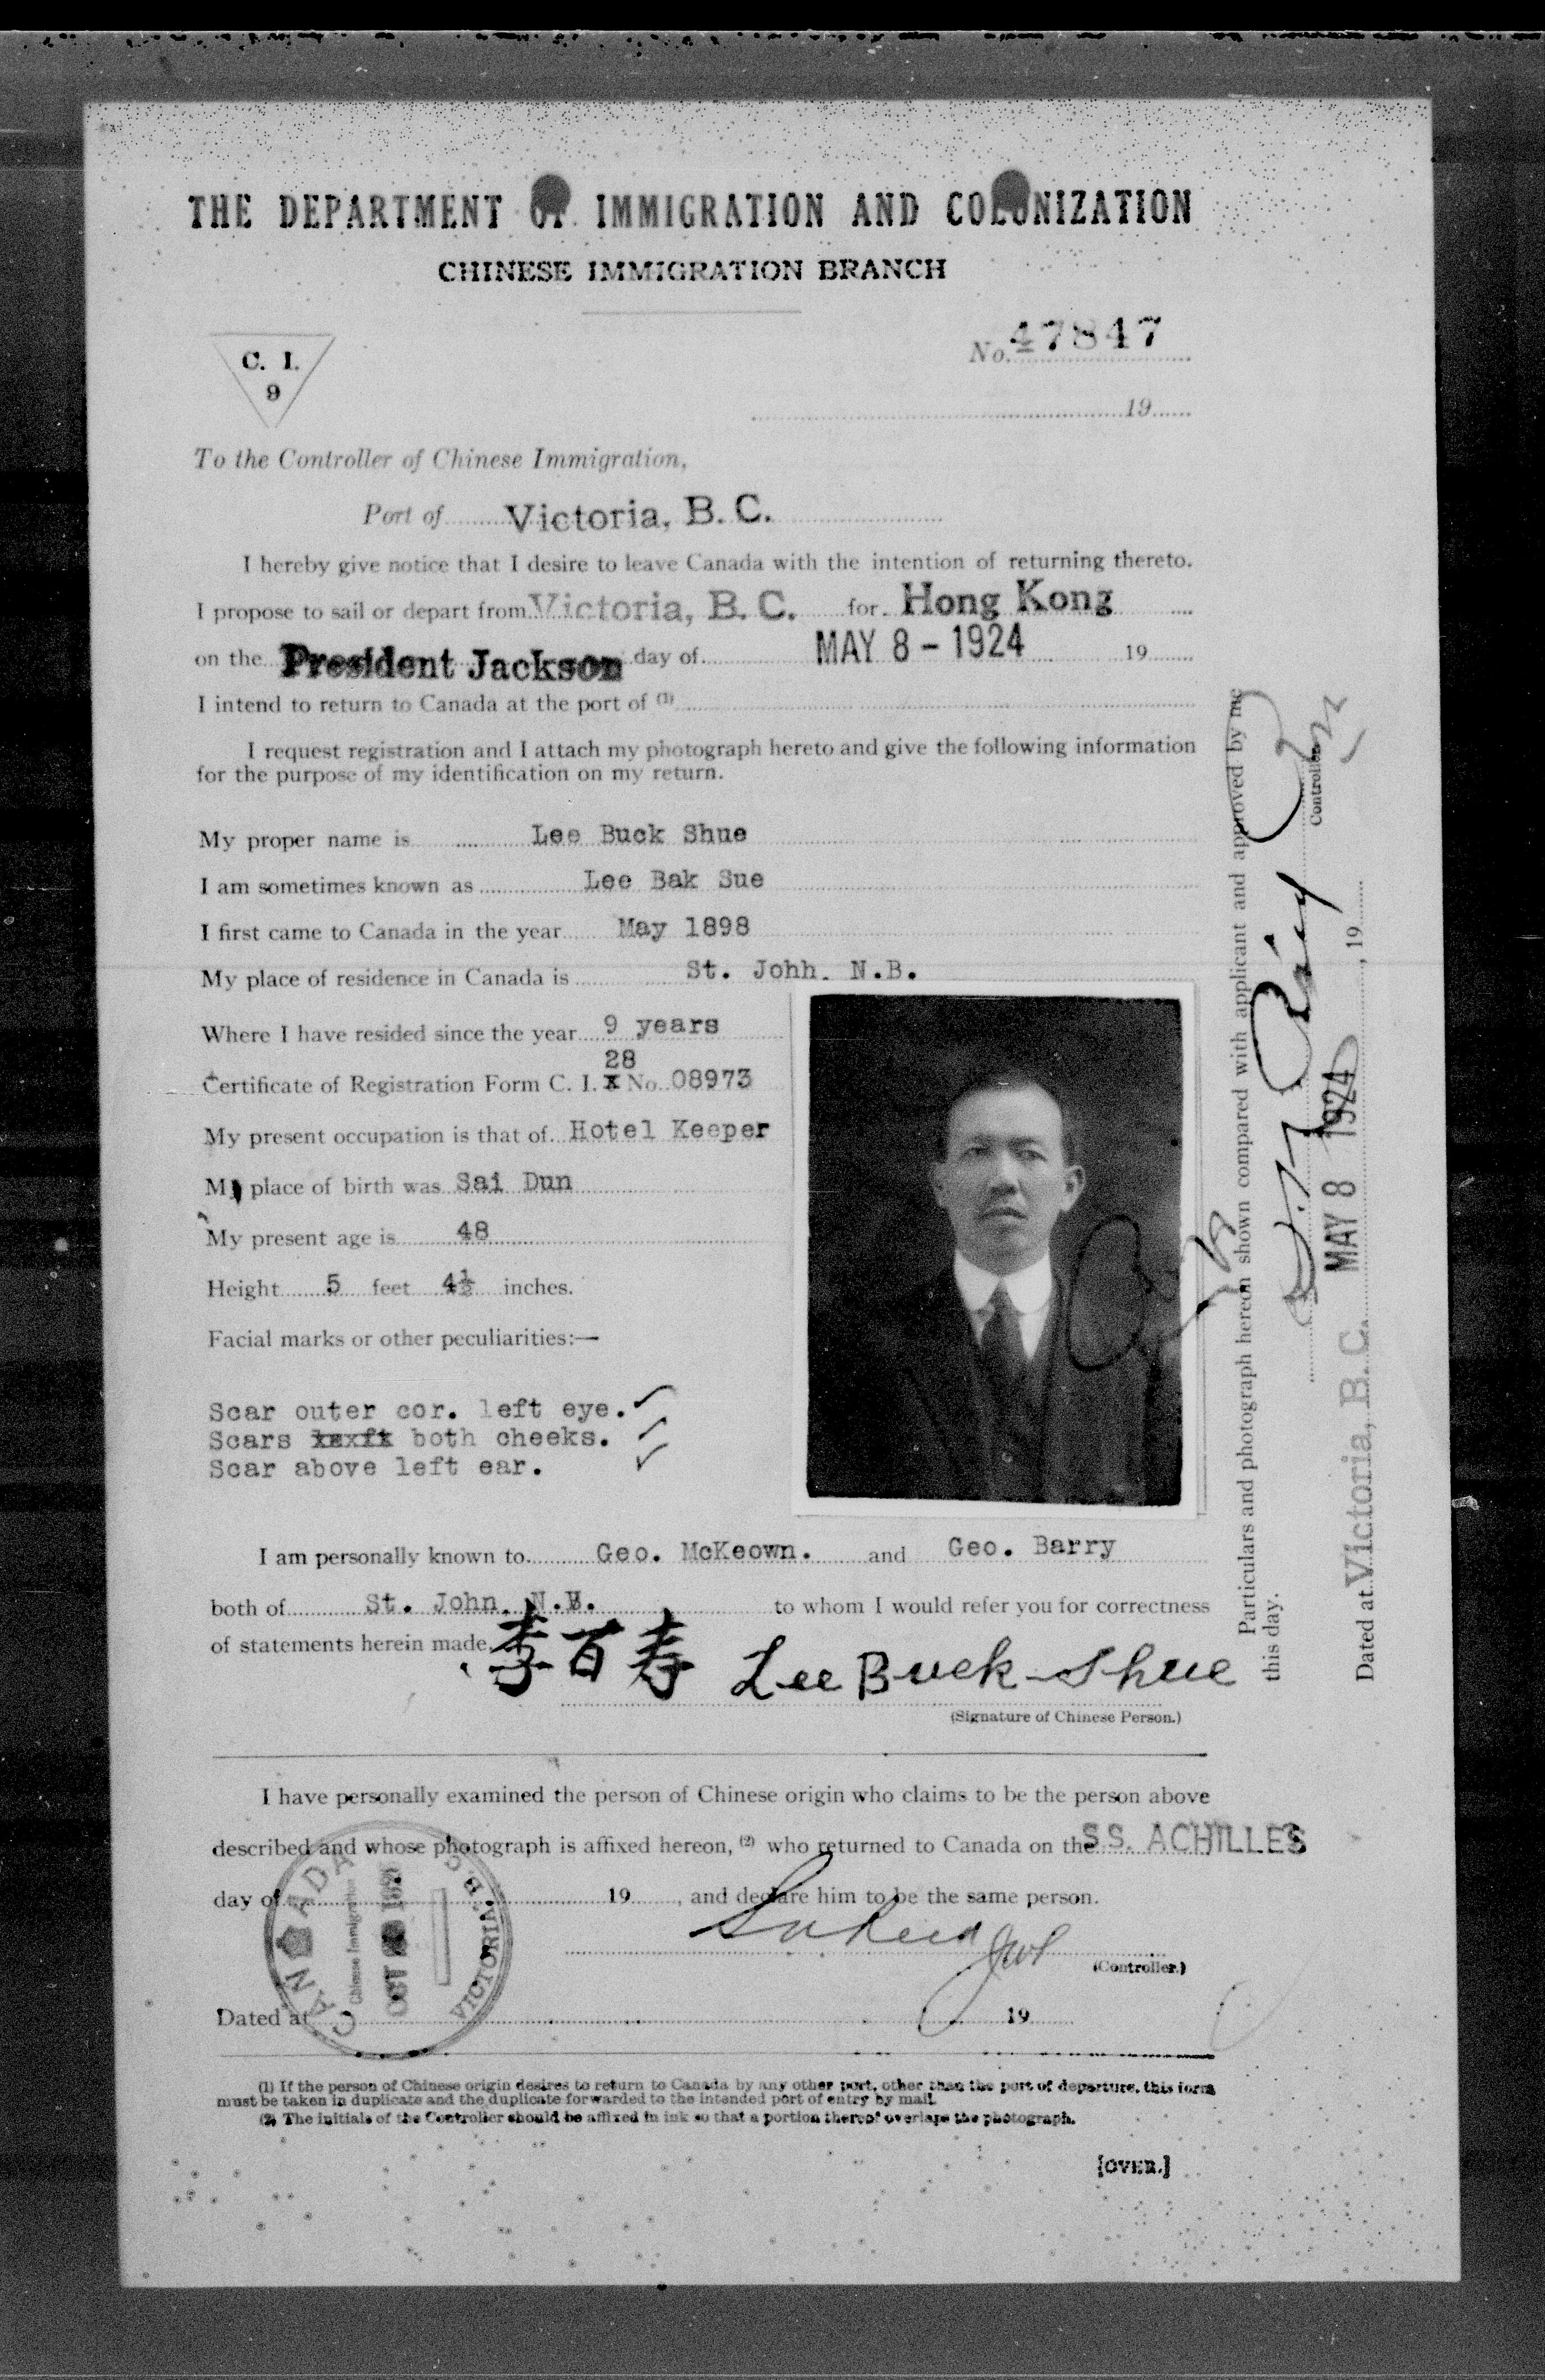 THE DEPARTMENT OF IMMIGRATION AND COLONIZATION
CHINESE IMMIGRATION BRANCH
C. I.
9
No. 47847
19
To the Controller of Chinese Immigration,
Port of Victoria, B. C.
I hereby give notice that I desire to leave Canada with the intention of returning thereto.
I propose to sail or depart from Victoria, B. C. for Hong Kong
on the President Jackson day of MAY 8 - 1924 19
I intend to return to Canada at the port of (1)
I request registration and I attach my photograph hereto and give the following information
for the purpose of my identification on my return.
My proper name is Lee Buck Shue
I am sometimes known as Lee Bak Sue
I first came to Canada in the year May 1898
My place of residence in Canada is St. Johh. N.B.
Where I have resided since the year 9 years
28
Certificate of Registration Form C. I. X No. 08973
My present occupation is that of Hotel Keeper
My place of birth was Sai Dun
My present age is 48
Height 5 feet 4½ inches.
Facial marks or other peculiarities:—
Scar outer cor. left eye. ✓
Scars both cheeks. ✓
Scar above left ear. ✓
I am personally known to Geo. McKeown. and Geo. Barry
both of St. John. to whom I would refer you for correctness
of statements herein made.
李百寿 Lee Buck Shue
(Signature of Chinese Person.)
I have personally examined the person of Chinese origin who claims to be the person above
described and whose photograph is affixed hereon, (2) who returned to Canada on the S.S. ACHILLES
day of 19 , and declare him to be the same person.
(Controller.)
Dated at 19
CANADA
Chinese Immigration
OCT
VICTORIA, B.C.
(1) If the person of Chinese origin desires to return to Canada by any other port, other than the port of departure, this form
must be taken in duplicate and the duplicate forwarded to the intended port of entry by mail.
(2) The initials of the Controller should be affixed in ink so that a portion thereof overlaps the photograph.
[OVER.]
Particulars and photograph hereon shown compared with applicant and approved by me
this day.
Controller
Dated at Victoria, B. C. MAY 8 1924, 19